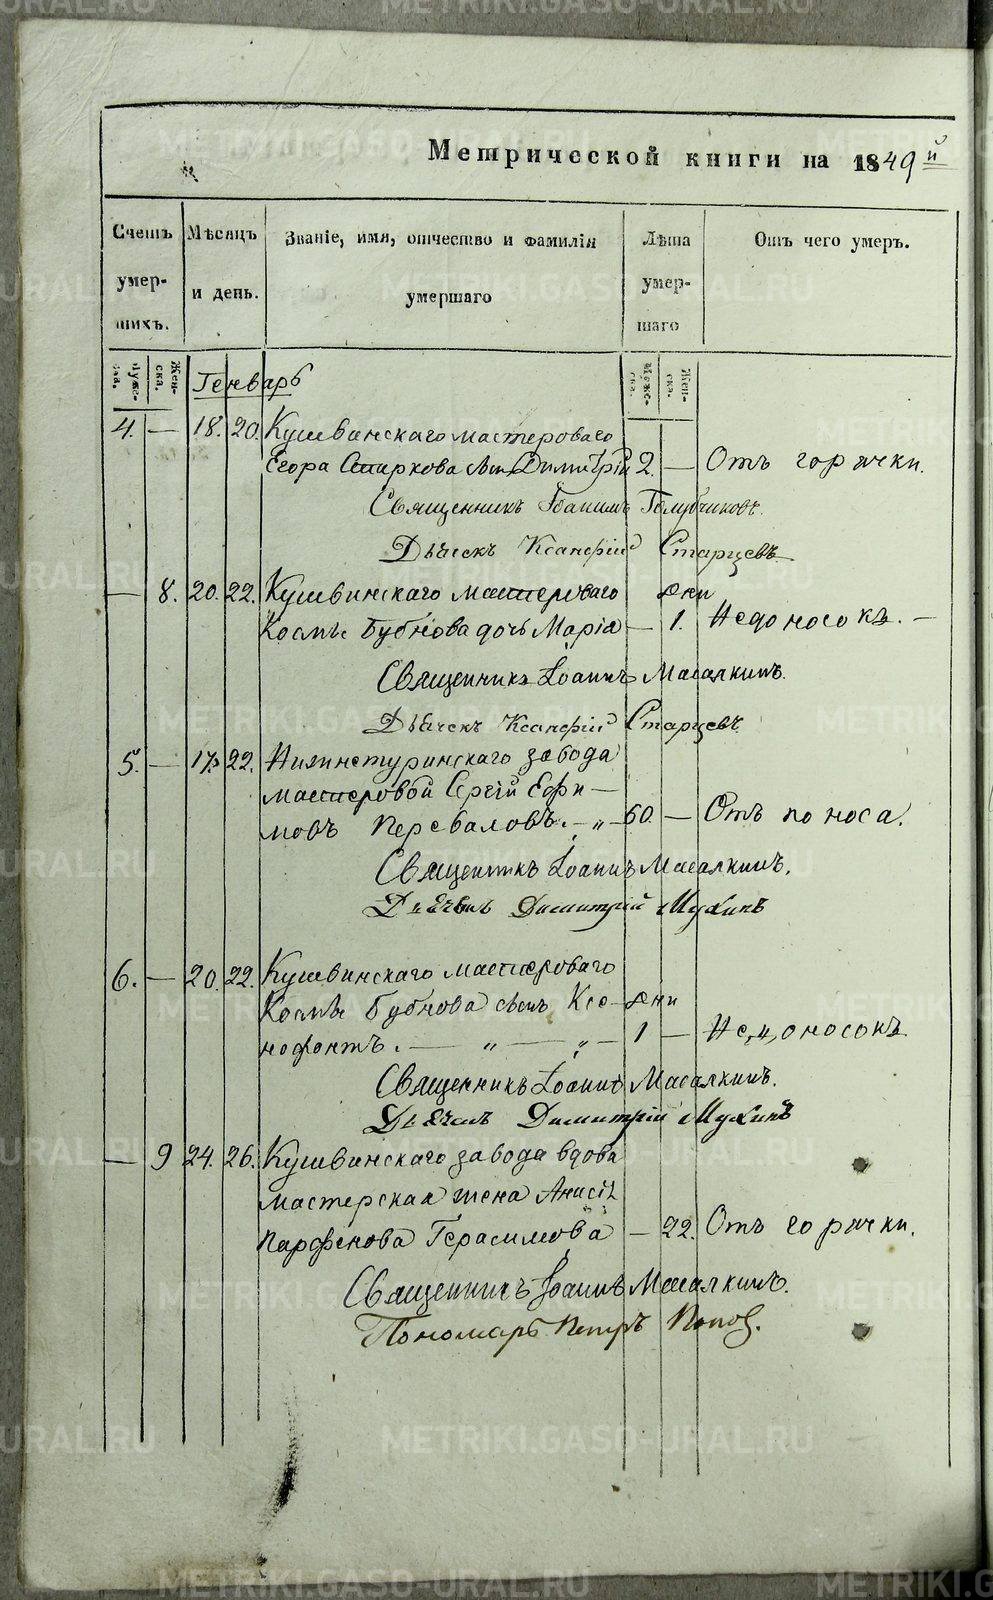 Метрической книги на 1849й
Счетъ умер- шихъ.
Мѣсяцъ и день.
Званіе, имя, отчество и фамилія умершаго
Лѣта умер- шаго
Отъ чего умеръ.
Муже- ска.
Жен- ска.
Генварь
Муже- ска.
Жен- ска.
4. — 18. 20. Кушвинскаго мастероваго
Егора Старкова сынъ Димитрій 2. — Отъ горячки.
Священникъ Іоаннъ Голубчиковъ.
Дьячекъ Ксанфій Старцевъ
— 8. 20. 22. Кушвинскаго мастероваго дни
Космы Бубнова дочь Марія — 1. Недоносокъ. —
Священникъ Іоаннъ Масалкинъ.
Дьячекъ Ксанфій Старцевъ
5. — 17. 22. Нижнетуринскаго завода
мастеровой Сергій Ефи—
мовъ Перебаловъ. — „ — 60. — Отъ поноса.
Священникъ Іоаннъ Масалкинъ.
Дьячекъ Димитрій Мухинъ
6. — 20. 22. Кушвинскаго мастероваго
Космы Бубнова сынъ Ксе- дни
нофонтъ. — „ — „ — 1 — Недоносокъ
Священникъ Іоаннъ Масалкинъ.
Дьячекъ Димитрій Мухинъ
— 9 24. 26. Кушвинскаго завода вдова
мастерская жена Анисія
Парфенова Герасимова — 22. Отъ горячки.
Священникъ Іоаннъ Масалкинъ.
Пономарь Петръ Поповъ.
METRIKI.GASO-URAL.RU